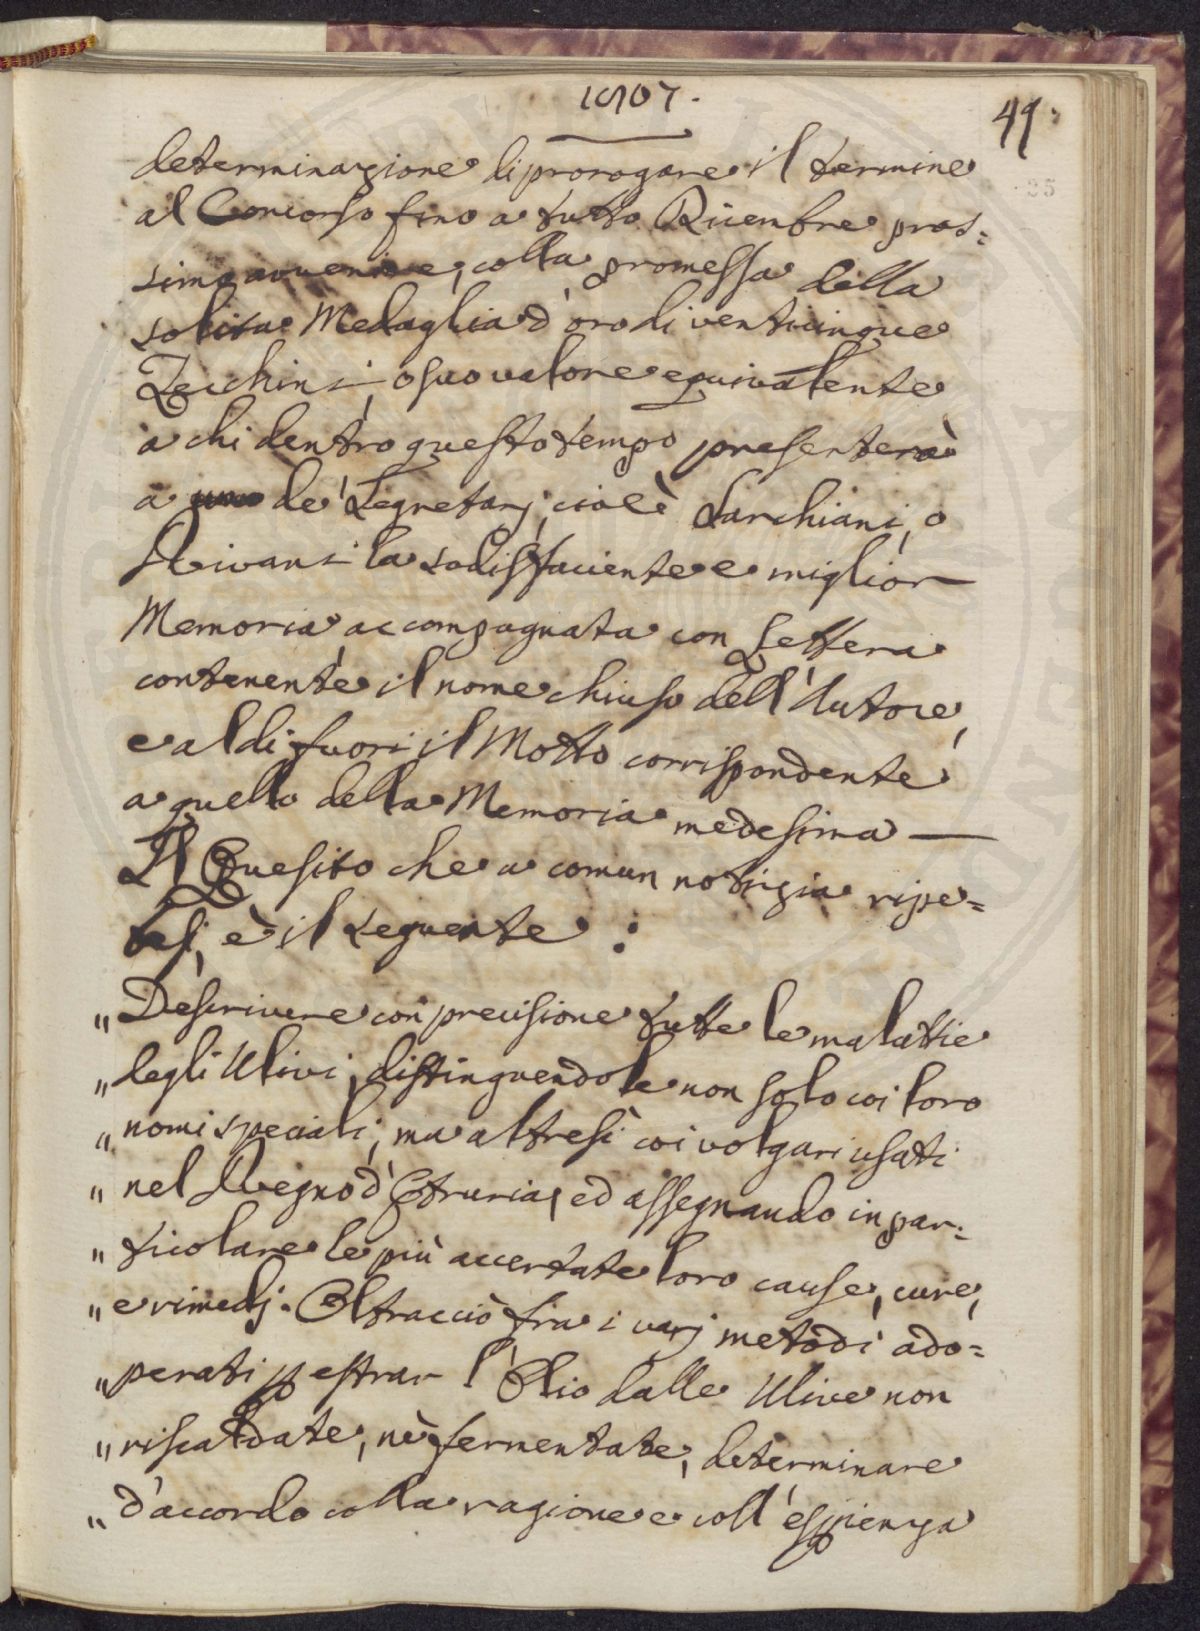 1807.
41.
35
determinazione di prorogare il termine
al Concorso fino a tutto Dicembre pros=
simo avvenire, colla promessa della
solita Medaglia d'oro di venticinque
Zecchini, o suo valore equivalente
a chi dentro questo tempo presenterà
a uno de' Segretarj, cioè Sarchiani, o
Rivani la sodisfaciente e miglior
Memoria accompagnata con Lettera
contenente il nome chiuso dell'Autore,
e al di fuori il Motto corrispondente
a quello della Memoria medesima —
Il Quesito che a comun notizia ripe=
tesi, è il seguente:
„ Descrivere con precisione tutte le malattie
„ degli Ulivi, distinguendole non solo coi loro
„ nomi speciali, ma altresì coi volgari usati
„ nel Regno d'Etruria, ed assegnando in par=
„ ticolare le più accertate loro cause, cure,
„ e rimedj. Oltracciò fra i varj metodi ado=
„ perati p estrar l'Olio dalle Ulive non
„ riscaldate, nè fermentate, determinare
„ d'accordo colla ragione e coll'espienza